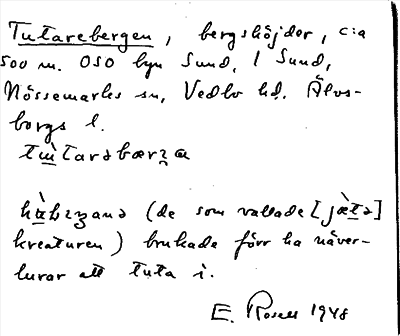 Tutarebergen, bergshöjder, c:a
500 m. OSO byn Sund, 1 Sund,
Nössemarks sn, Vedbo hd. Älvs-
borgs l.
tɯ̀tarəbærʒa
(de som vallade [jæ̀tə]
kreaturen) brukade förr ha näver-
lurar att tuta i.
E. Rosell 1948